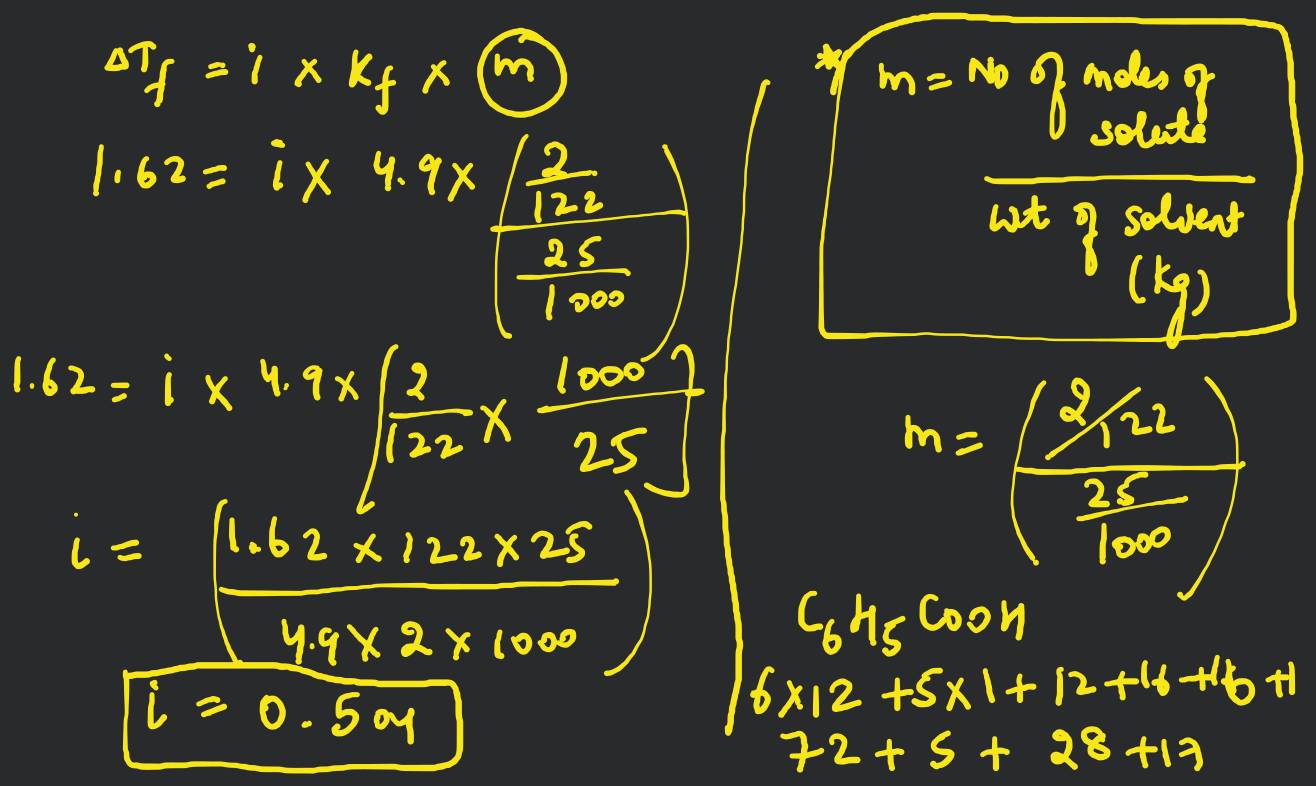 ΔTf = i × Kf × m
1.62 = i × 4.9 × ((2/122)/(25/1000))
1.62 = i × 4.9 × [2/122 × 1000/25]
i = (1.62 × 122 × 25 / 4.9 × 2 × 1000)
i = 0.504
* m = No of moles of
solute
wt of solvent
(kg)
m = ((2/122)/(25/1000))
C6H5COOH
6×12 + 5×1 + 12 + 16 + 16 + 1
72 + 5 + 28 + 17